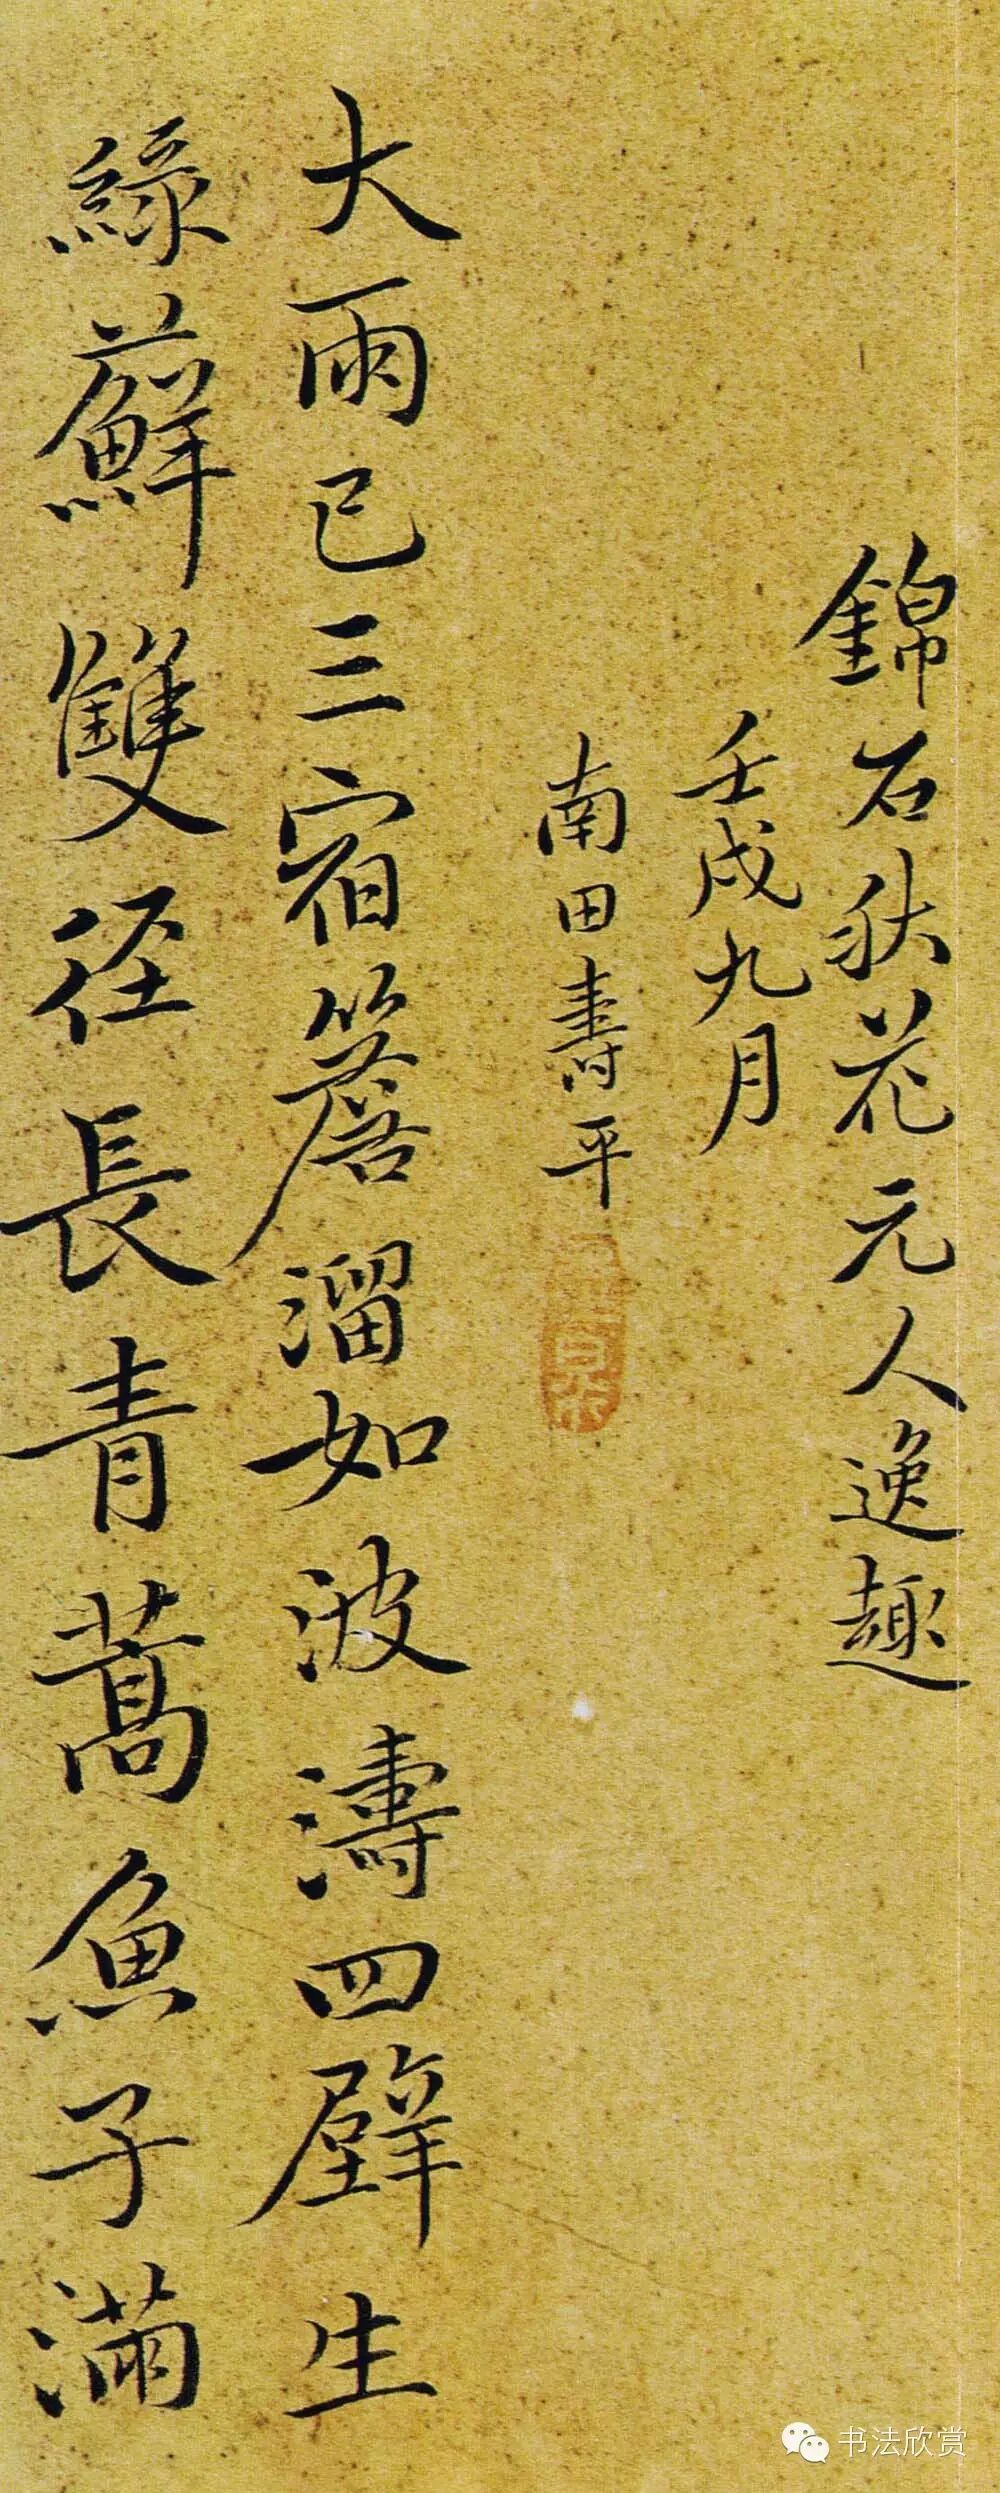 錦石秋花元人逸趣
壬戌九月
南田壽平
大雨已三宿簷溜如波濤四壁生
綠蘚雙径長青蒿魚子滿
书法欣赏